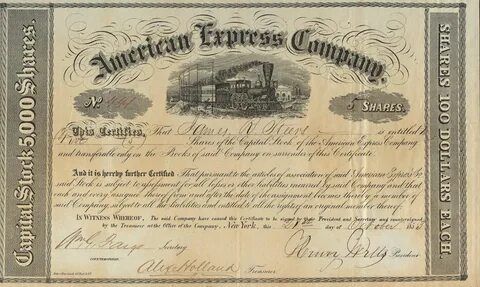 American Express Company,
No.
5 SHARES.
Capital Stock 5,000 Shares.
SHARES 100 DOLLARS EACH.
This Certifies, That James is entitled to
Shares of the Capital Stock of the American Express Company
and transferable only on the Books of said Company on surrender of this Certificate.
And it is hereby further Certified. That pursuant to the articles of association of said American Express Co
said Stock is subject to assessment for all losses or other liabilities incurred by said Company and that
each and every assignee thereof from and after the date of the assignment becomes thereby a member of
said Company, subject to all the liabilities and entitled to all the rights of an original member thereof.
IN WITNESS WHEREOF, The said Company have caused this Certificate to be signed by their President and Secretary and countersigned
by the Treasurer at the Office of the said Company, New York, this day of October
Wm G Fargo Secretary Henry Wells President
Alex Holland Treasurer